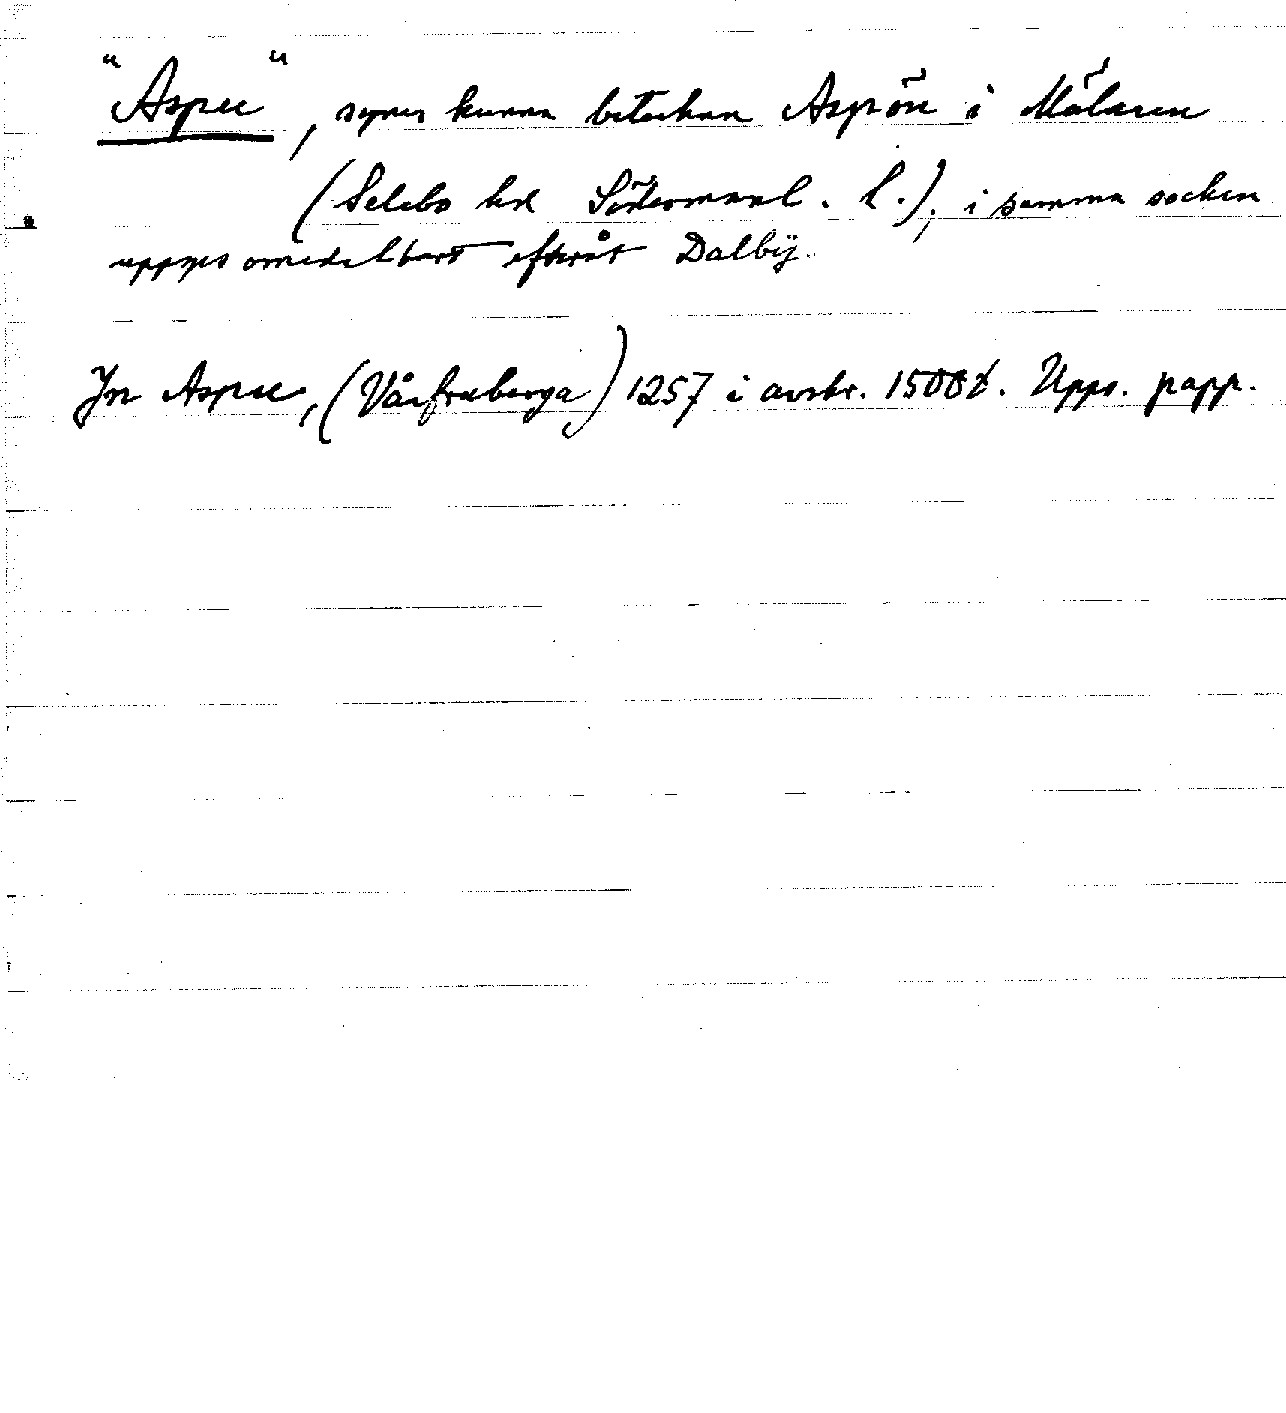 "Aspu", synes kunna beteckna Aspön i Mälaren
(Selebo hd Södermanl. l.), i samma socken
uppges omedelbart efteråt Dalby.
In Aspu, (Vårfruberga) 1257 i avskr. 1500 t. Upps. papp.